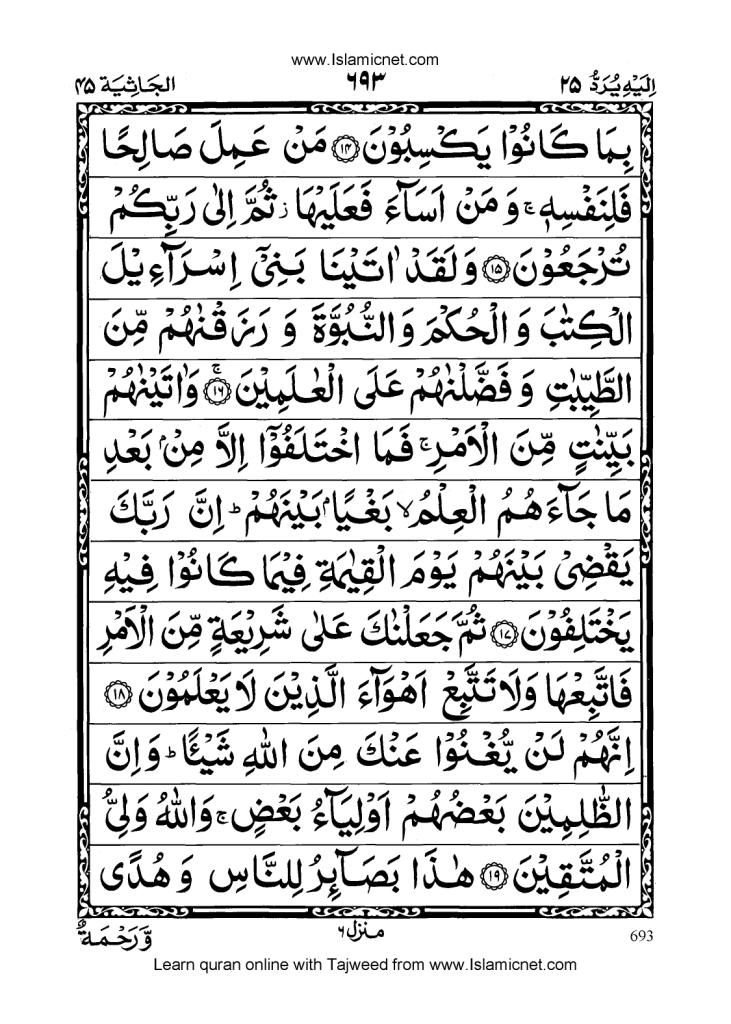 www.Islamicnet.com
اِلَیْهِ یُرَدُّ ۲۵ ۶۹۳ الجَاثِیَة ۴۵
بِمَا كَانُوْا یَكْسِبُوْنَ ۝۱۴ مَنْ عَمِلَ صَالِحًا
فَلِنَفْسِهٖ ۚ وَ مَنْ اَسَآءَ فَعَلَیْهَا ؗ ثُمَّ اِلٰی رَبِّكُمْ
تُرْجَعُوْنَ ۝۱۵ وَ لَقَدْ اٰتَیْنَا بَنِیْۤ اِسْرَآءِیْلَ
الْكِتٰبَ وَ الْحُكْمَ وَ النُّبُوَّةَ وَ رَزَقْنٰهُمْ مِّنَ
الطَّیِّبٰتِ وَ فَضَّلْنٰهُمْ عَلَی الْعٰلَمِیْنَ ۝۱۶ۚ وَ اٰتَیْنٰهُمْ
بَیِّنٰتٍ مِّنَ الْاَمْرِ ۚ فَمَا اخْتَلَفُوْۤا اِلَّا مِنْۢ بَعْدِ
مَا جَآءَهُمُ الْعِلْمُ ۙ بَغْیًۢا بَیْنَهُمْ ؕ اِنَّ رَبَّكَ
یَقْضِیْ بَیْنَهُمْ یَوْمَ الْقِیٰمَةِ فِیْمَا كَانُوْا فِیْهِ
یَخْتَلِفُوْنَ ۝۱۷ ثُمَّ جَعَلْنٰكَ عَلٰی شَرِیْعَةٍ مِّنَ الْاَمْرِ
فَاتَّبِعْهَا وَ لَا تَتَّبِعْ اَهْوَآءَ الَّذِیْنَ لَا یَعْلَمُوْنَ ۝۱۸
اِنَّهُمْ لَنْ یُّغْنُوْا عَنْكَ مِنَ اللّٰهِ شَیْـًٔا ؕ وَ اِنَّ
الظّٰلِمِیْنَ بَعْضُهُمْ اَوْلِیَآءُ بَعْضٍ ۚ وَ اللّٰهُ وَلِیُّ
الْمُتَّقِیْنَ ۝۱۹ هٰذَا بَصَآئِرُ لِلنَّاسِ وَ هُدًی
وَّ رَحْمَةٌ منزل ۶ 693
Learn quran online with Tajweed from www.Islamicnet.com